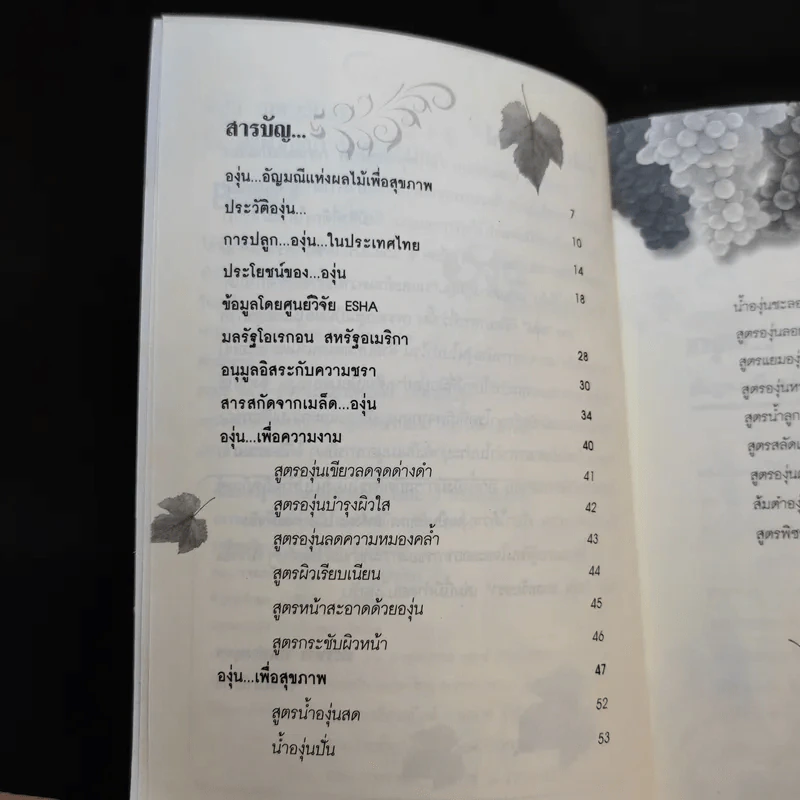 สารบัญ...
องุ่น...อัญมณีแห่งผลไม้เพื่อสุขภาพ
ประวัติองุ่น... 7
การปลูก...องุ่น...ในประเทศไทย 10
ประโยชน์ของ...องุ่น 14
ข้อมูลโดยศูนย์วิจัย ESHA 18
มลรัฐโอเรกอน สหรัฐอเมริกา 28
อนุมูลอิสระกับความชรา 30
สารสกัดจากเมล็ด...องุ่น 34
องุ่น...เพื่อความงาม 40
สูตรองุ่นเขียวลดจุดด่างดำ 41
สูตรองุ่นบำรุงผิวใส 42
สูตรองุ่นลดความหมองคล้ำ 43
สูตรผิวเรียบเนียน 44
สูตรหน้าสะอาดด้วยองุ่น 45
สูตรกระชับผิวหน้า 46
องุ่น...เพื่อสุขภาพ 47
สูตรน้ำองุ่นสด 52
น้ำองุ่นปั่น 53
น้ำองุ่นชะลอ
สูตรองุ่นลอ
สูตรแยมองุ
สูตรองุ่นห
สูตรน้ำลูก
สูตรสลัด
สูตรองุ่น
ส้มตำอง
สูตรพิช